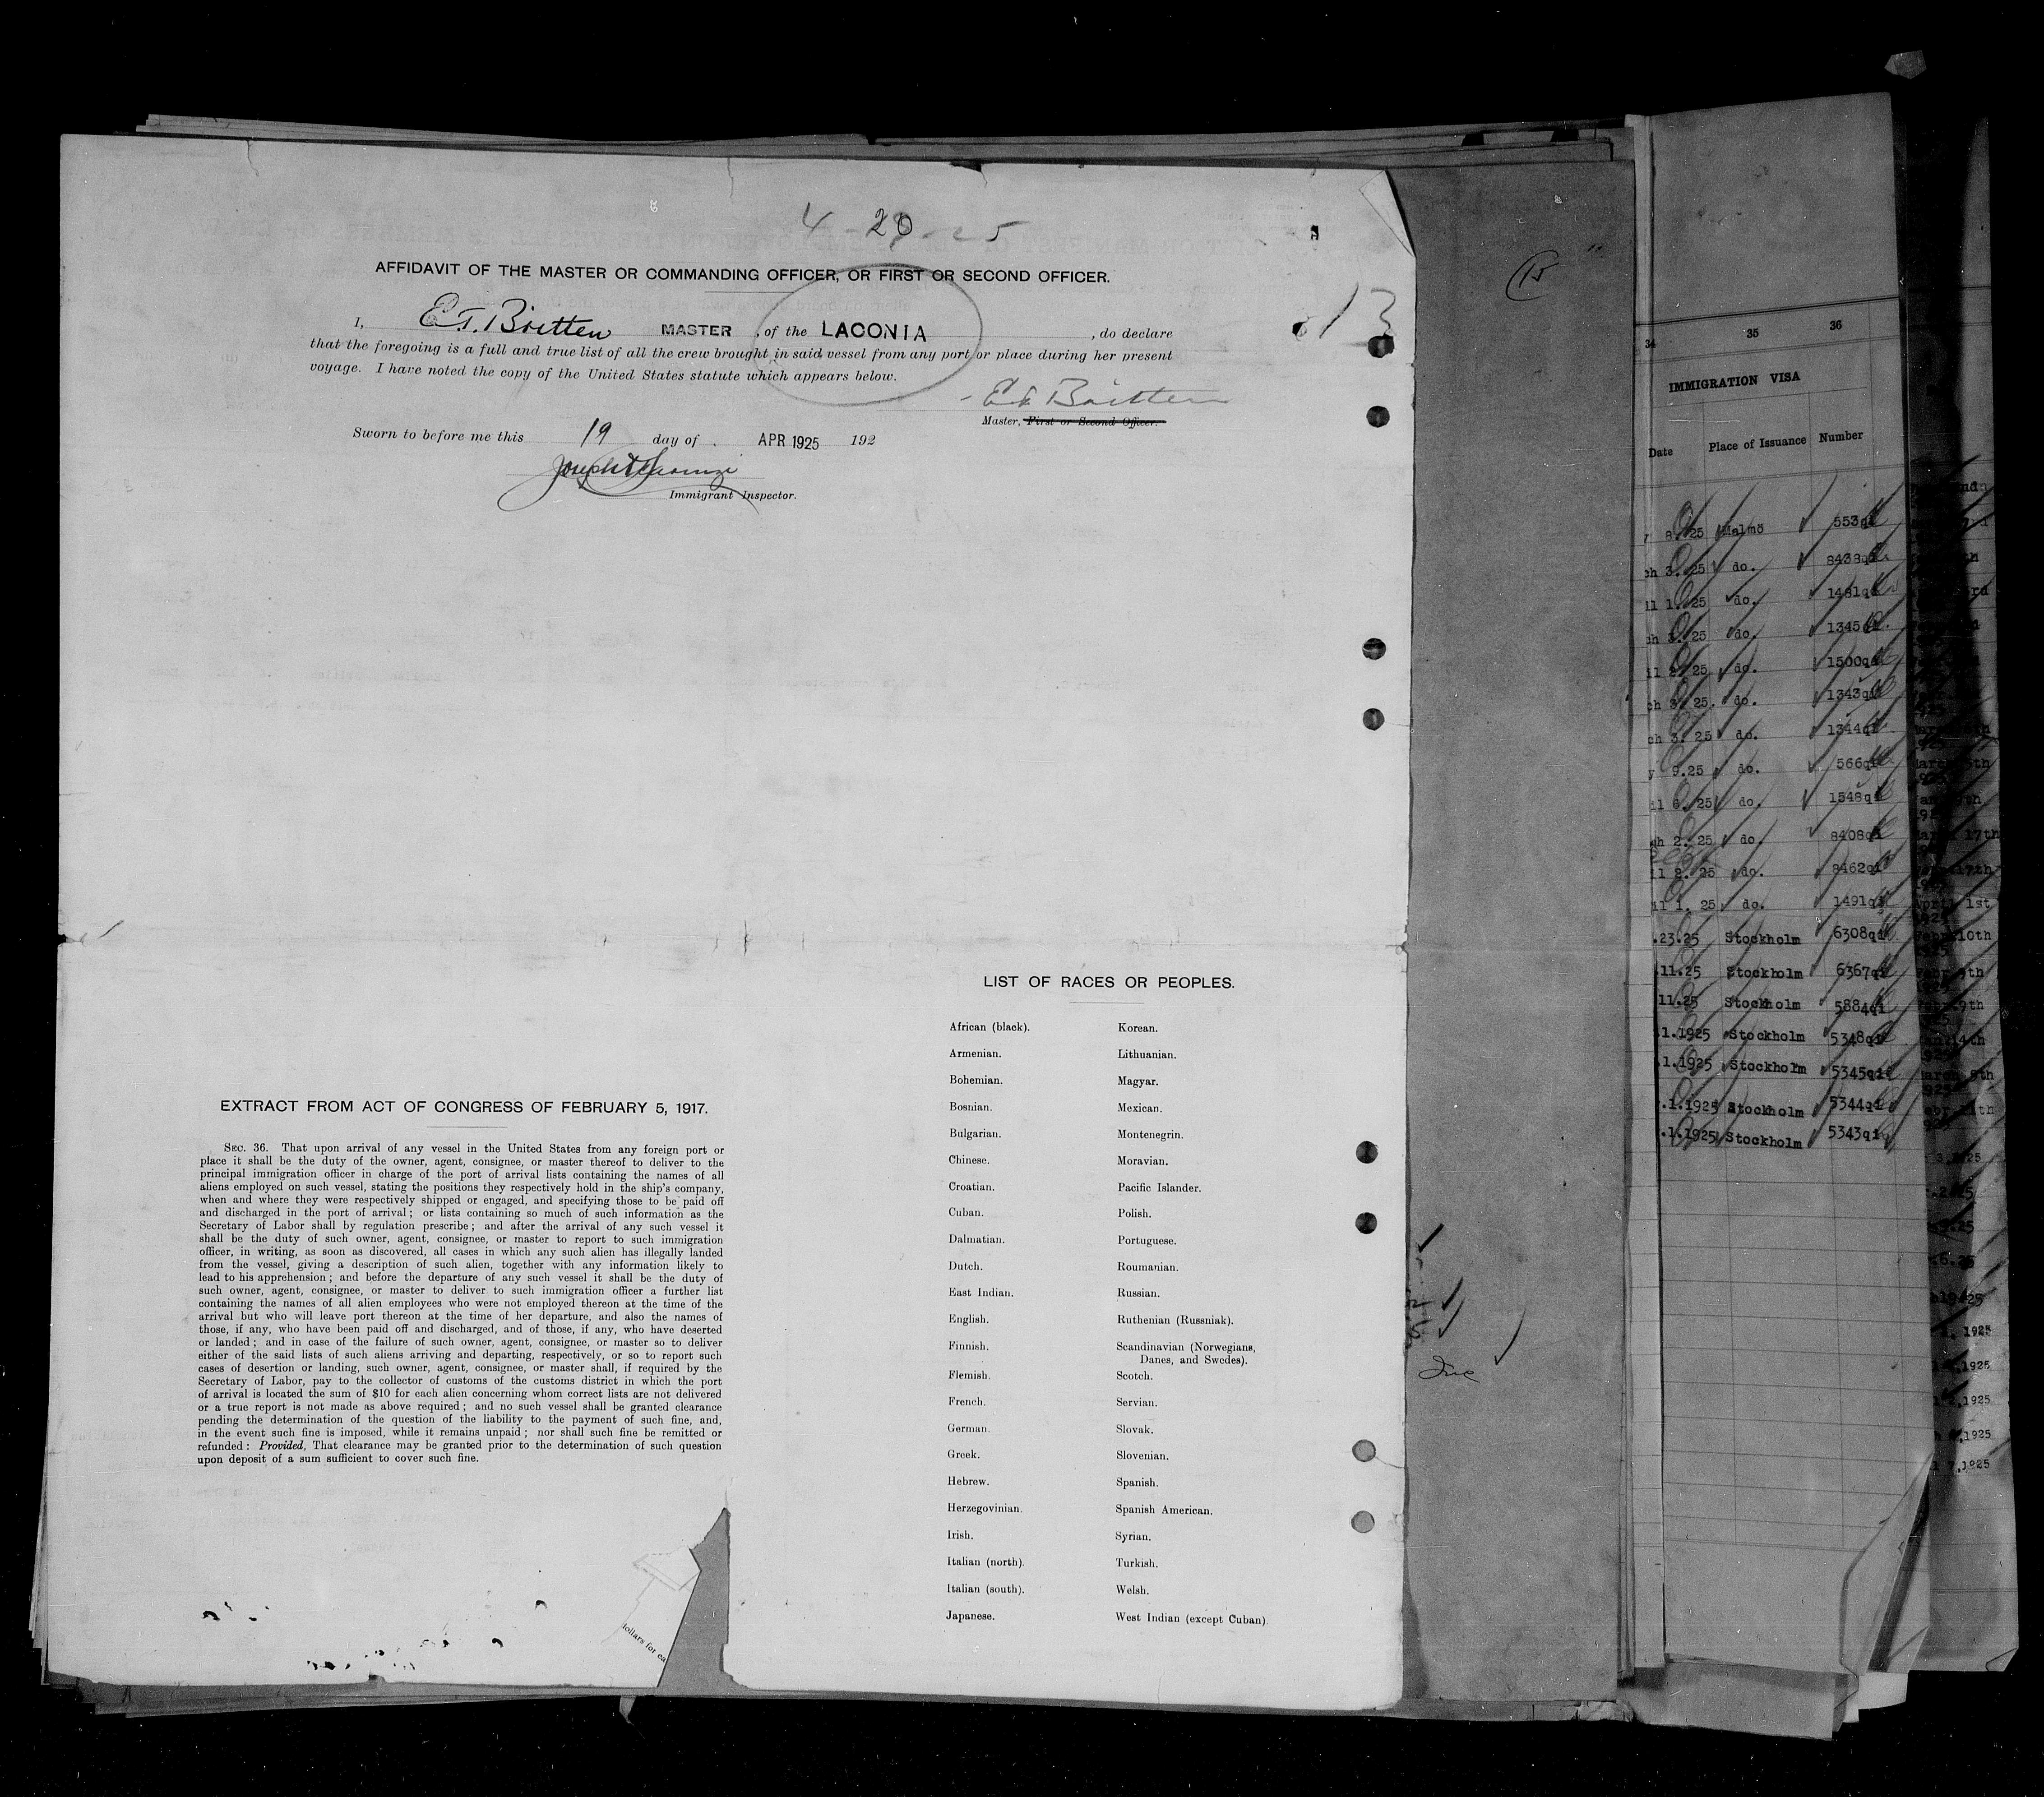 4-20-25
AFFIDAVIT OF THE MASTER OR COMMANDING OFFICER, OR FIRST OR SECOND OFFICER.
I, E.T. Britten MASTER, of the LACONIA, do declare
that the foregoing is a full and true list of all the crew brought in said vessel from any port or place during her present
voyage. I have noted the copy of the United States statute which appears below.
E T Britten
Master, First or Second Officer.
Sworn to before me this 19 day of APR 1925 192
Immigrant Inspector.
13
EXTRACT FROM ACT OF CONGRESS OF FEBRUARY 5, 1917.
SEC. 36. That upon arrival of any vessel in the United States from any foreign port or
place it shall be the duty of the owner, agent, consignee, or master thereof to deliver to the
principal immigration officer in charge of the port of arrival lists containing the names of all
aliens employed on such vessel, stating the positions they respectively hold in the ship's company,
when and where they were respectively shipped or engaged, and specifying those to be paid off
and discharged in the port of arrival; or lists containing so much of such information as the
Secretary of Labor shall by regulation prescribe; and after the arrival of any such vessel it
shall be the duty of such owner, agent, consignee, or master to report to such immigration
officer, in writing, as soon as discovered, all cases in which any such alien has illegally landed
from the vessel, giving a description of such alien, together with any information likely to
lead to his apprehension; and before the departure of any such vessel it shall be the duty of
such owner, agent, consignee, or master to deliver to such immigration officer a further list
containing the names of all alien employees who were not employed thereon at the time of the
arrival but who will leave port thereon at the time of her departure, and also the names of
those, if any, who have been paid off and discharged, and of those, if any, who have deserted
or landed; and in case of the failure of such owner, agent, consignee, or master so to deliver
either of the said lists of such aliens arriving and departing, respectively, or so to report such
cases of desertion or landing, such owner, agent, consignee, or master shall, if required by the
Secretary of Labor, pay to the collector of customs of the customs district in which the port
of arrival is located the sum of $10 for each alien concerning whom correct lists are not delivered
or a true report is not made as above required; and no such vessel shall be granted clearance
pending the determination of the question of the liability to the payment of such fine, and,
in the event such fine is imposed, while it remains unpaid; nor shall such fine be remitted or
refunded: Provided, That clearance may be granted prior to the determination of such question
upon deposit of a sum sufficient to cover such fine.
dollars for ea
LIST OF RACES OR PEOPLES.
African (black). Korean.
Armenian. Lithuanian.
Bohemian. Magyar.
Bosnian. Mexican.
Bulgarian. Montenegrin.
Chinese. Moravian.
Croatian. Pacific Islander.
Cuban. Polish.
Dalmatian. Portuguese.
Dutch. Roumanian.
East Indian. Russian.
English. Ruthenian (Russniak).
Finnish. Scandinavian (Norwegians,
Danes, and Swedes).
Flemish. Scotch.
French. Servian.
German. Slovak.
Greek. Slovenian.
Hebrew. Spanish.
Herzegovinian. Spanish American.
Irish. Syrian.
Italian (north). Turkish.
Italian (south). Welsh.
Japanese. West Indian (except Cuban).
15
34 35 36
IMMIGRATION VISA
Date Place of Issuance Number
8. 25 Malmö 553qi
ch 3. 25 do. 8438qi
il 1. 25 do. 1481qi
ch 3. 25 do. 1345qi
il 2. 25 do. 1500qi
ch 3. 25. do. 1343qi
ch 3. 25 do. 1344qi
y 9.25 do. 566qi
il 6. 25 do. 1548qi
ch 2. 25 do. 8408qi
il 2. 25 do. 8462qi
il 1. 25 do. 1491qi
.23.25 Stockholm 6308qi
.11.25 Stockholm 6367qi
11.25 Stockholm 5884qi
1.1925 Stockholm 5348qi
1.1925 Stockholm 5345qi
.1.1925 Stockholm 5344qi
.1.1925 Stockholm 5343qi